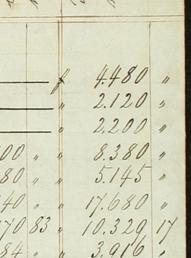 ƒ 4.480 „
„ 2.120 „
„ 2.200 „
00 „ „ 8.380 „
80 „ „ 5.145 „
40 „ „ 17.680 „
170 83 „ 10.329 17
84 „ „ 3.916 „